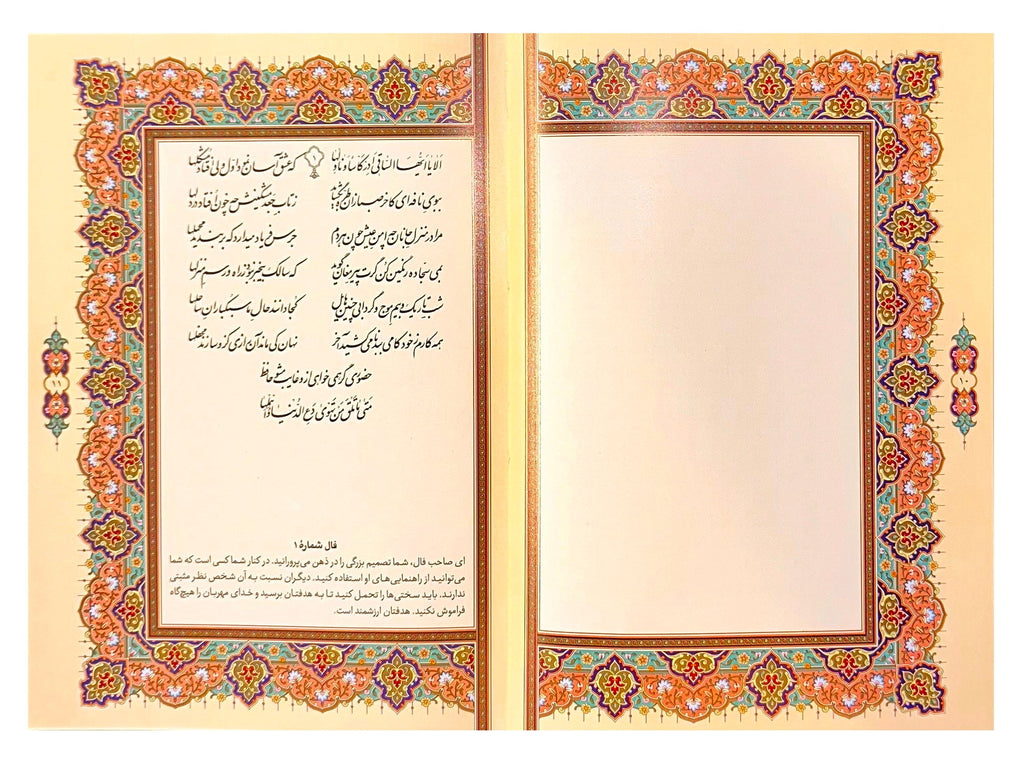 ۱۰
اَلا یا اَیُّهَا السّاقی اَدِر کَأساً وَ ناوِلها ۱ که عشق آسان نمود اوّل ولی افتاد مشکلها
ببوی نافه‌ای کاخر صبا زان طرّه بگشاید ز تاب جعد مشکینش چه خون افتاد در دلها
مرا در منزل جانان چه امن عیش چون هر دم جرس فریاد میدارد که بربندید محملها
بمی سجّاده رنگین کن گرت پیر مغان گوید که سالک بیخبر نبود ز راه و رسم منزلها
شب تاریک و بیم موج و گردابی چنین هایل کجا دانند حال ما سبکباران ساحلها
همه کارم ز خودکامی ببدنامی کشید آخر نهان کی ماند آن رازی کزو سازند محفلها
حضوری گر همی خواهی ازو غایب مشو حافظ
مَتی ما تَلقَ مَن تَهوی دَعِ الدُّنیا وَ اَهمِلها
فال شمارهٔ ۱
ای صاحب فال، شما تصمیم بزرگی را در ذهن می‌پرورانید. در کنار شما کسی است که شما
می‌توانید از راهنمایی‌های او استفاده کنید. دیگران نسبت به آن شخص نظر مثبتی
ندارند. باید سختی‌ها را تحمل کنید تا به هدفتان برسید و خدای مهربان را هیچ‌گاه
فراموش نکنید. هدفتان ارزشمند است.
۱۱